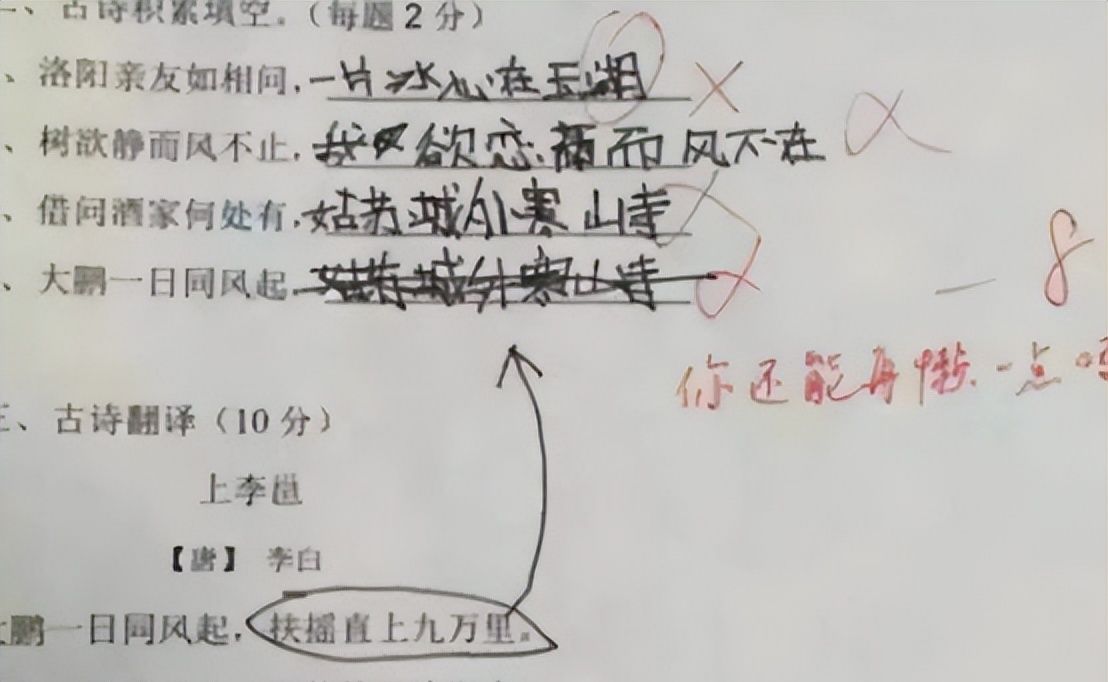 一、古诗积累填空。（每题2分）
、洛阳亲友如相问，一片冰心在玉湖
、树欲静而风不止，欲恋 而风不在
、借问酒家何处有，姑苏城外寒山寺
、大鹏一日同风起，姑苏城外寒山寺
— 8
你还能再懒一点吗
三、古诗翻译（10分）
上李邕
【唐】 李白
大鹏一日同风起，扶摇直上九万里。